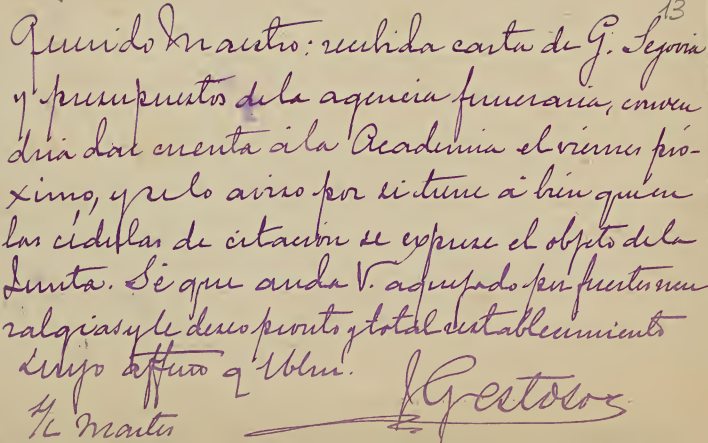 13
Querido Maestro: recibida carta de G. Segovia
y presupuestos dela agencia funeraria, conven
dria dar cuenta ála Academia el viernes pró-
ximo, y se lo aviso por si tiene á bien qui en
las cédulas de citación se exprese el objeto dela
Junta. Sé que anda V. aquejado por fuertes neu
ralgias y le deseo pronto y total restablecimiento
Suyo affmo q
S/c Martes
JGestoso